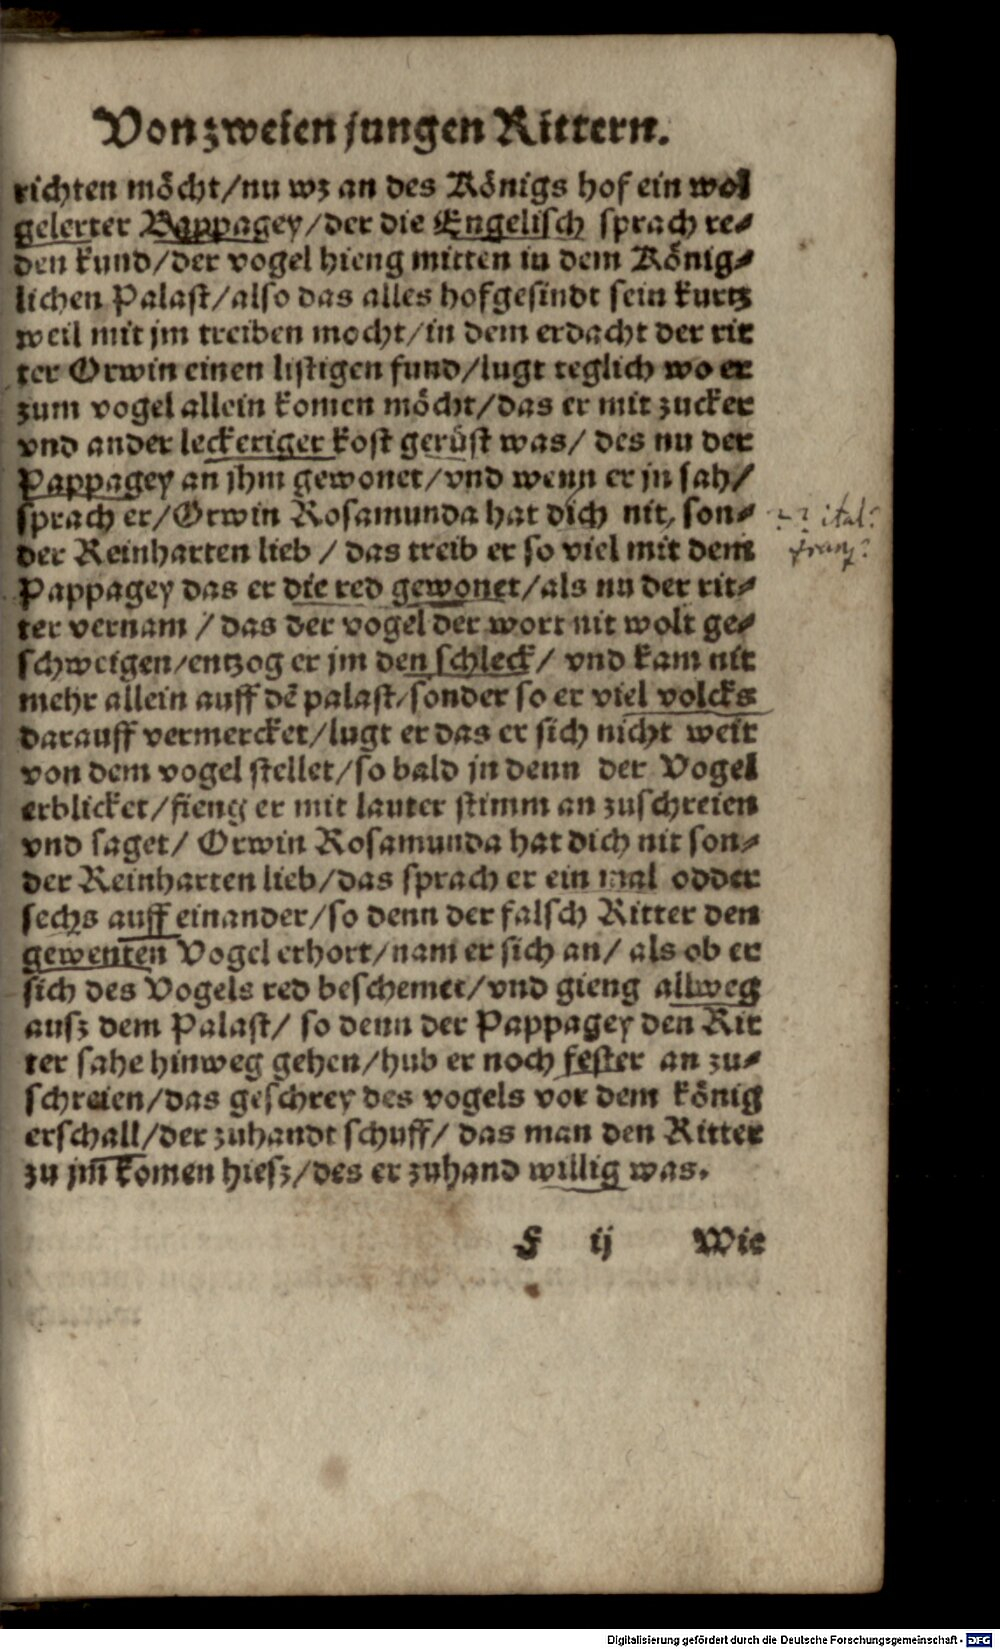 Von zweien jungen Rittern.
richten möcht/nu wz an des Königs hof ein wol
gelerter Bappagey/der die Engelisch sprach re-
den kund/der vogel hieng mitten in dem König-
lichen Palast/also das alles hofgesindt sein kurtz
weil mit jm treiben mocht/in dem erdacht der rit
ter Orwin einen listigen fund/lugt teglich wo er
zum vogel allein komen möcht/das er mit zucker
vnd ander leckeriger kost gerüst was/ des nu der
Pappagey an jhm gewonet/vnd wenn er jn sah/
sprach er/Orwin Rosamunda hat dich nit, son-
der Reinharten lieb / das treib er so viel mit dem
Pappagey das er die red gewonet/als nu der rit-
ter vernam / das der vogel der wort nit wolt ge-
schweigen/entzog er jm den schleck/ vnd kam nit
mehr allein auff dē palast/sonder so er viel volcks
darauff vermercket/lugt er das er sich nicht weit
von dem vogel stellet/so bald jn denn der Vogel
erblicket/fieng er mit lauter stimm an zuschreien
vnd saget/ Orwin Rosamunda hat dich nit son-
der Reinharten lieb/das sprach er ein mal odder
sechs auff einander/so denn der falsch Ritter den
gewenten Vogel erhort/nam er sich an/ als ob er
sich des Vogels red beschemet/vnd gieng allweg
ausz dem Palast/ so denn der Pappagey den Rit
ter sahe hinweg gehen/hub er noch fester an zu-
schreien/das geschrey des vogels vor dem könig
erschall/der zuhandt schuff/ das man den Ritter
zu jm̄ komen hiesz/des er zuhand willig was.
F ij Wie
ital?
franz?
Digitalisierung gefördert durch die Deutsche Forschungsgemeinschaft - DFG